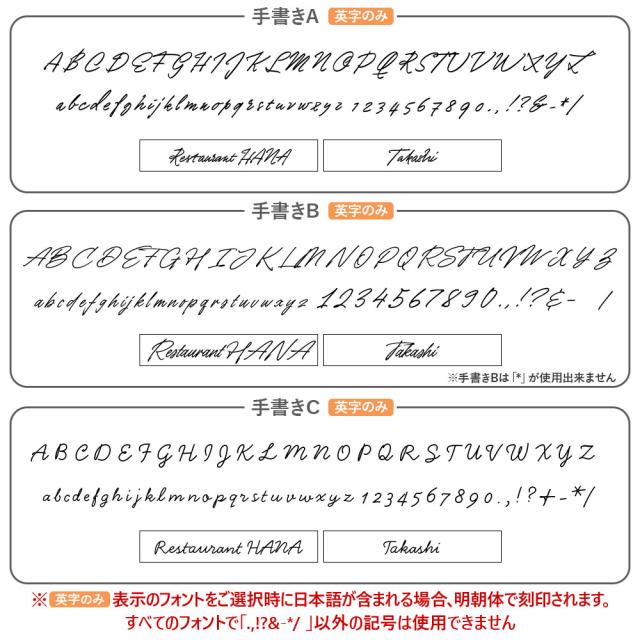 手書きA 英字のみ
ABCDEFGHIJKLMNOPQRSTUVWXYZ
abcdefghijklmnopqrstuvwxyz 1234567890.,!?&-*/
Restaurant HANA Takashi
手書きB 英字のみ
ABCDEFGHIJKLMNOPQRSTUVWXYZ
abcdefghijklmnopqrstuvwxyz 1234567890.,!?&- /
Restaurant HANA Takashi
※手書きBは「*」が使用出来ません
手書きC 英字のみ
ABCDEFGHIJKLMNOPQRSTUVWXYZ
abcdefghijklmnopqrstuvwxyz 1234567890.,!?+-*/
Restaurant HANA Takashi
※ 英字のみ 表示のフォントをご選択時に日本語が含まれる場合、明朝体で刻印されます。
すべてのフォントで「.,!?&-*/ 」以外の記号は使用できません